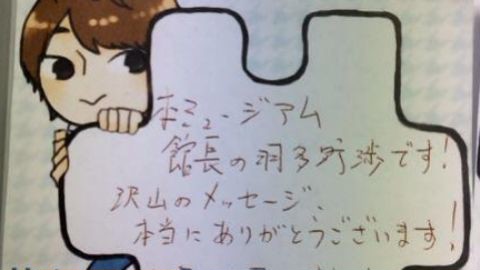 本ミュージアム
館長の羽多野渉です!
沢山のメッセージ、
本当にありがとうございます!